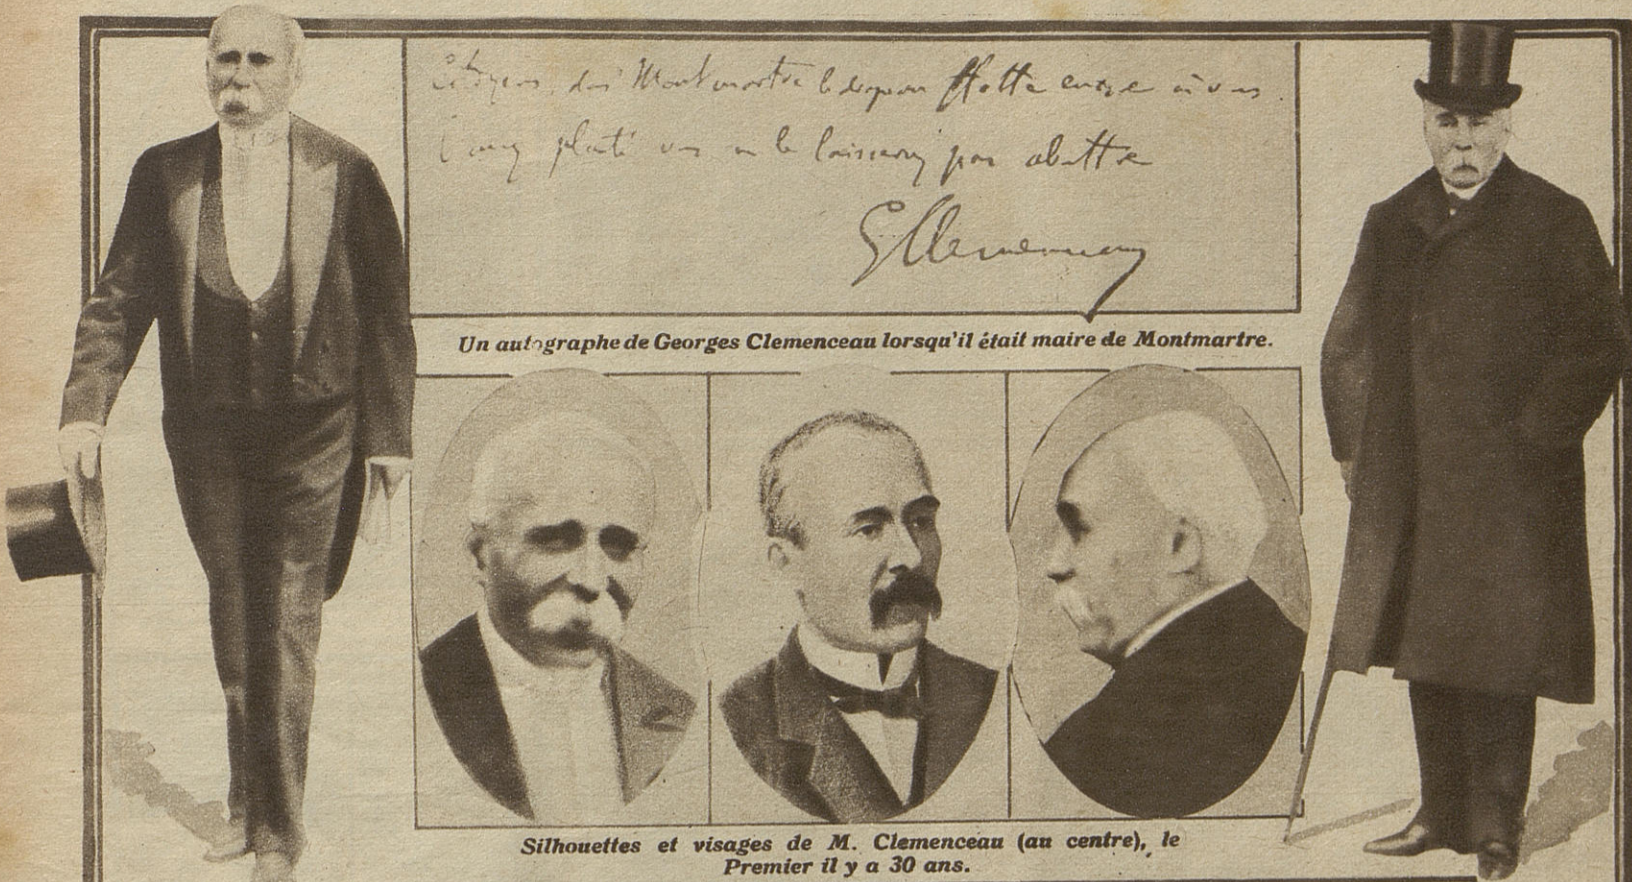 Citoyens de Montmartre le drapeau flotte encore si vous
l'avez planté vous ne le laisserez pas abattre
GClemenceau
Un autographe de Georges Clemenceau lorsqu'il était maire de Montmartre.
Silhouettes et visages de M. Clemenceau (au centre), le
Premier il y a 30 ans.